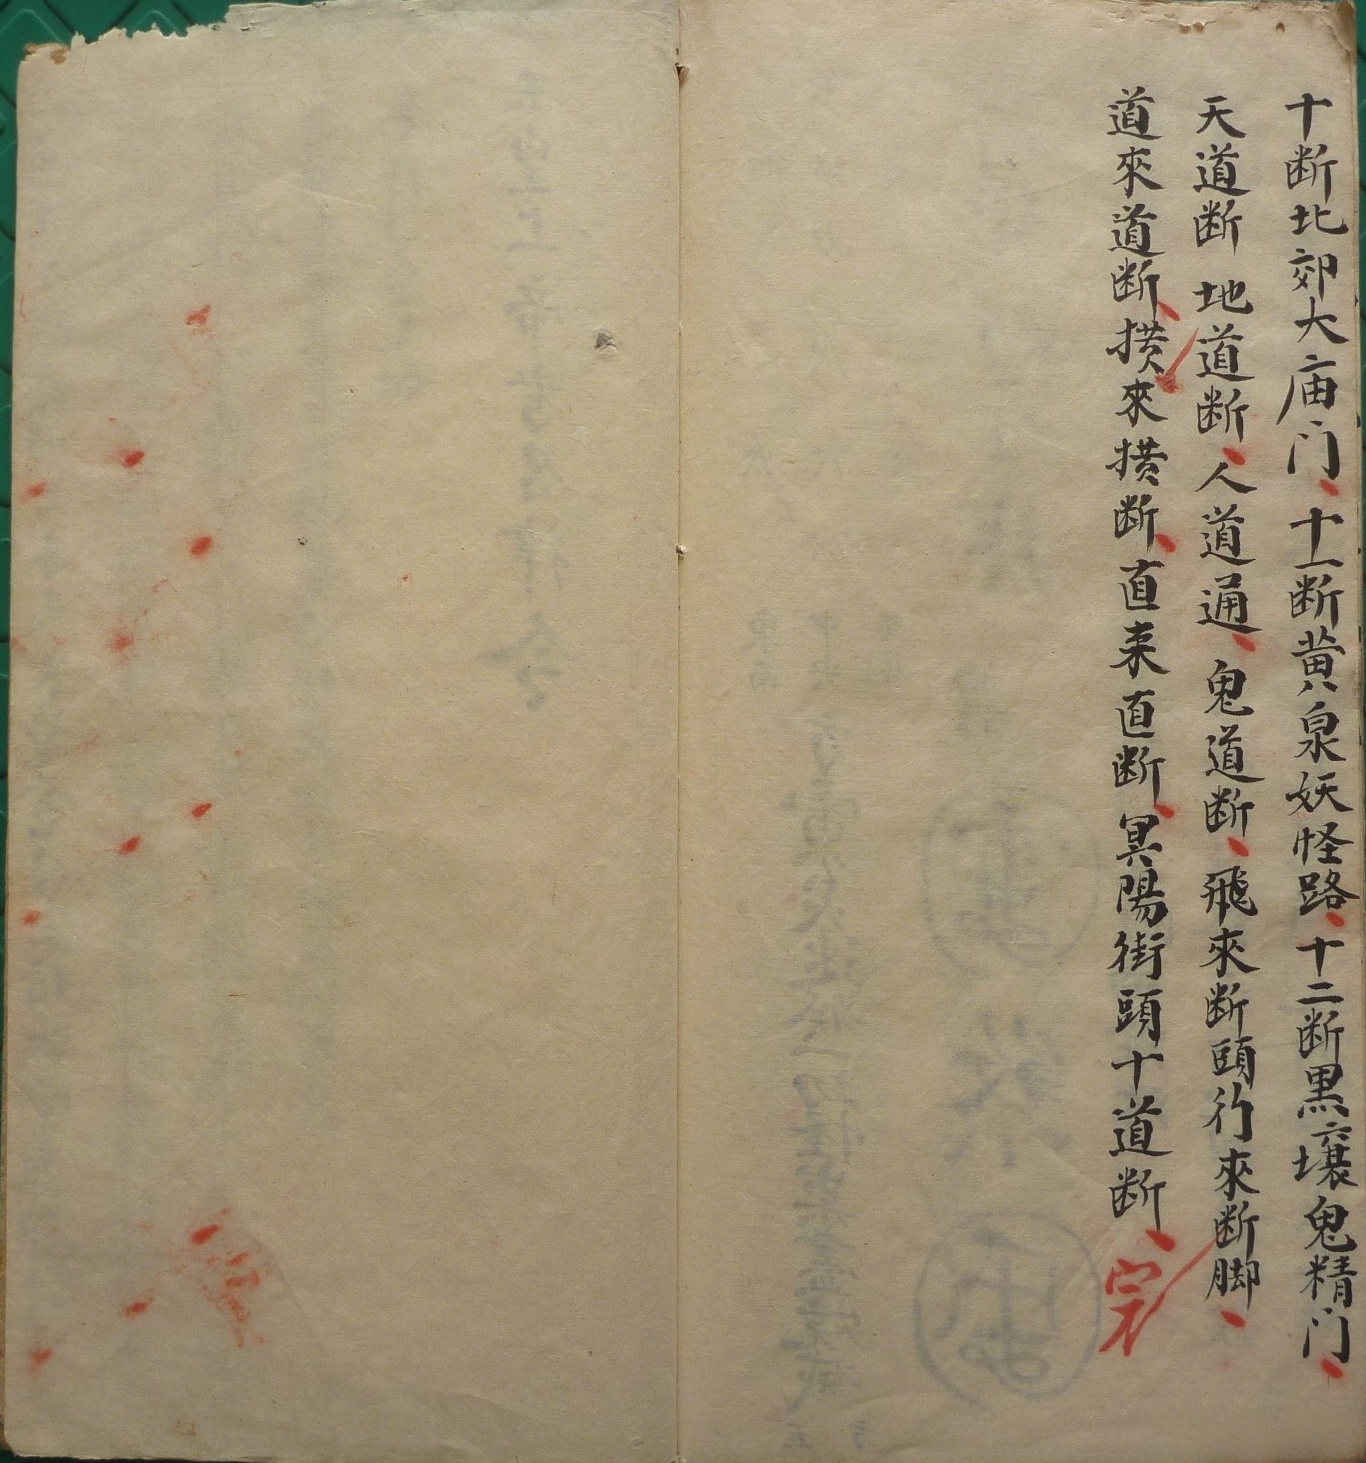 十断北郊大庙门、十一断黄泉妖怪路、十二断黑壤鬼精门、
天道断 地道断、人道通、鬼道断、飛來断頭行來断脚、
道來道断、横來横断、直来直断、冥陽街頭十道断、完